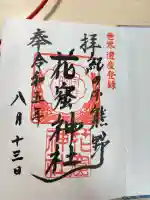 世界遺産登録
拝 熊野
花窟神社
奉 令和五年
八月十三日